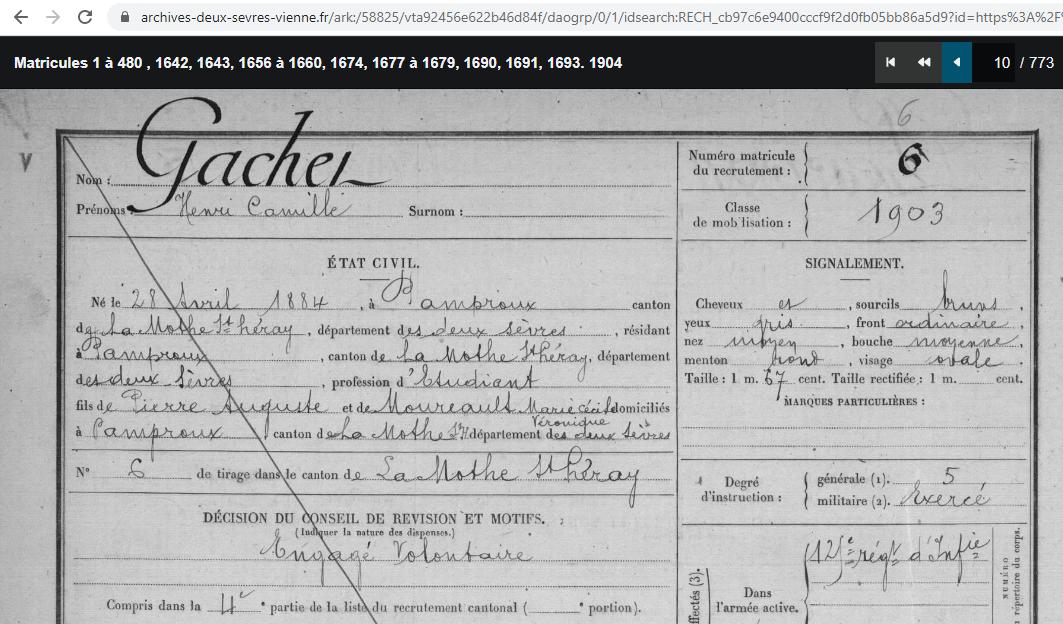 archives-deux-sevres-vienne.fr/ark:/58825/vta92456e622b46d84f/daogrp/0/1/idsearch:RECH_cb97c6e9400cccf9f2d0fb05bb86a5d9?id=https%3A%2F
Matricules 1 à 480 , 1642, 1643, 1656 à 1660, 1674, 1677 à 1679, 1690, 1691, 1693. 1904
10 / 773
6
V
Nom : Gacher
Prénoms : Henri Camille Surnom :
Numéro matricule du recrutement : 6
Classe de mobilisation : 1903
ÉTAT CIVIL.
Né le 28 Avril 1884, à Pamproux canton
de La Mothe St Héray, département des deux Sèvres, résidant
à Pamproux, canton de La Mothe St Héray, département
des deux Sèvres, profession d'Etudiant
fils de Pierre Auguste et de Moureault Marie Cécile Véronique domiciliés
à Pamproux canton de La Mothe St H département des deux Sèvres
N° 6 de tirage dans le canton de La Mothe St Héray
DÉCISION DU CONSEIL DE REVISION ET MOTIFS.
(Indiquer la nature des dispenses.)
Engagé Volontaire
Compris dans la 4e partie de la liste du recrutement cantonal ( e portion).
SIGNALEMENT.
Cheveux et, sourcils bruns,
yeux gris, front ordinaire,
nez moyen, bouche moyenne,
menton rond, visage ovale.
Taille : 1 m. 67 cent. Taille rectifiée : 1 m. cent.
MARQUES PARTICULIÈRES :
Degré d'instruction :
générale (1). 5
militaire (2). Exercé
Dans l'armée active.
125e régt d'Infie
NUMÉRO
répertoire du corps.